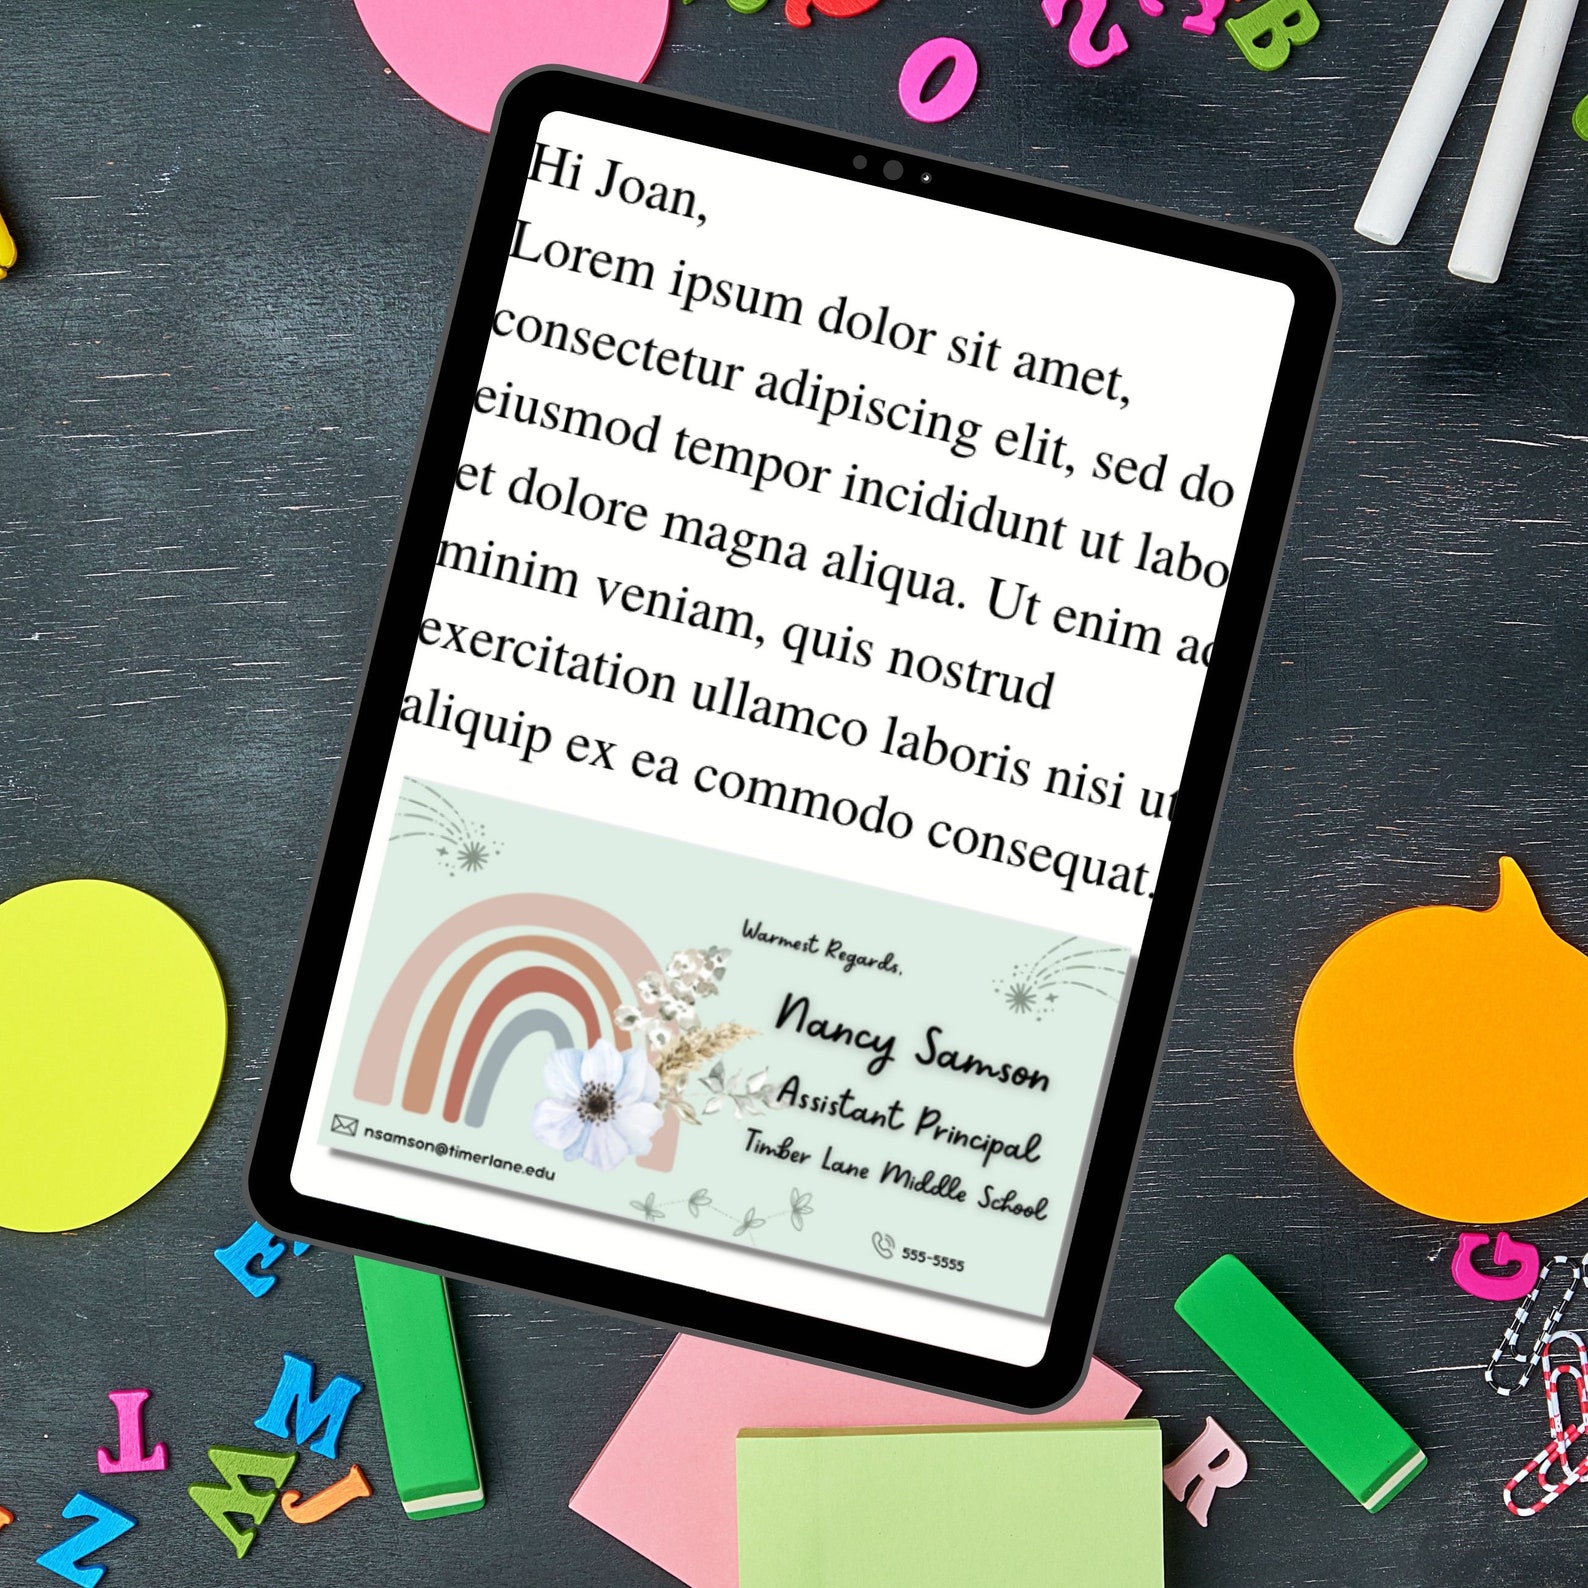 Hi Joan,
Lorem ipsum dolor sit amet,
consectetur adipiscing elit, sed do
eiusmod tempor incididunt ut labo
et dolore magna aliqua. Ut enim ad
minim veniam, quis nostrud
exercitation ullamco laboris nisi ut
aliquip ex ea commodo consequat.
Warmest Regards,
Nancy Samson
Assistant Principal
Timber Lane Middle School
nsamson@timerlane.edu
555-5555
O
B
G
E
M
T
W
J
Z
R